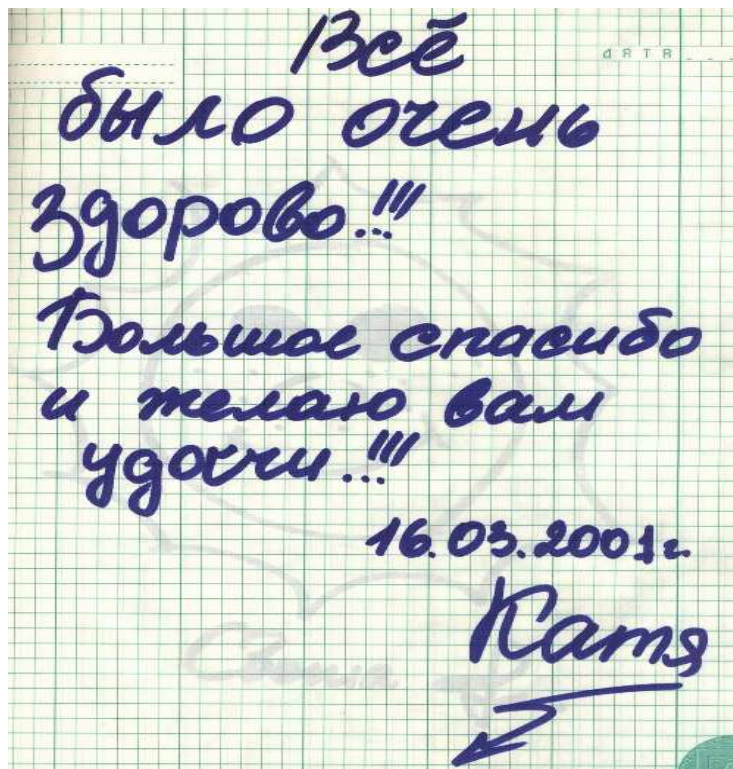 ДАТА
Всё
было очень
здорово!!!
Большое спасибо
и желаю вам
удачи!!!
16.03.2001г.
Катя